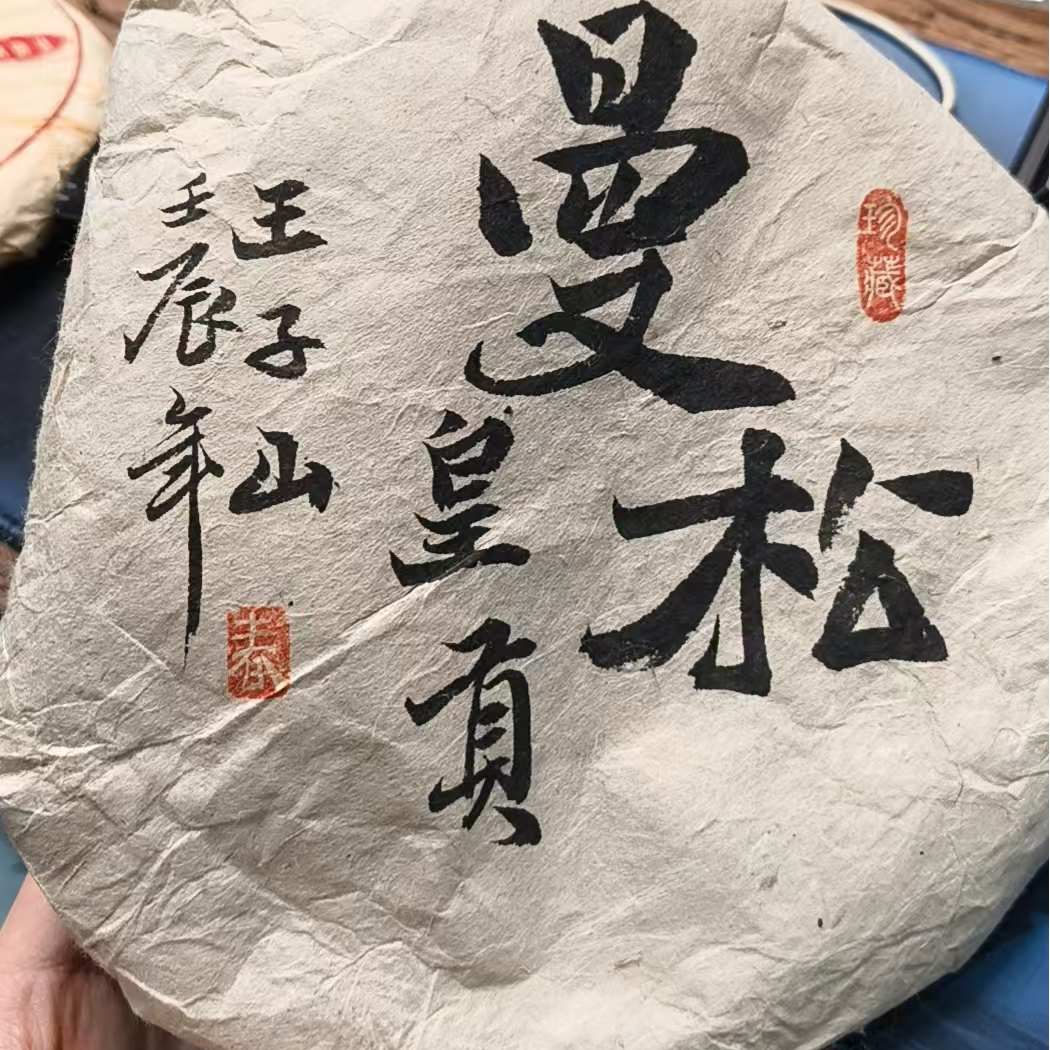 珍藏
曼松
皇贡
王子山
壬辰年
春